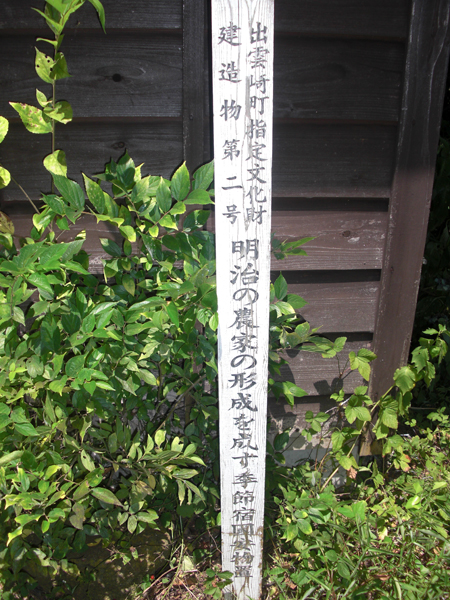 出雲崎町指定文化財
建造物第二号
明治の農家の形成を成す季節宿